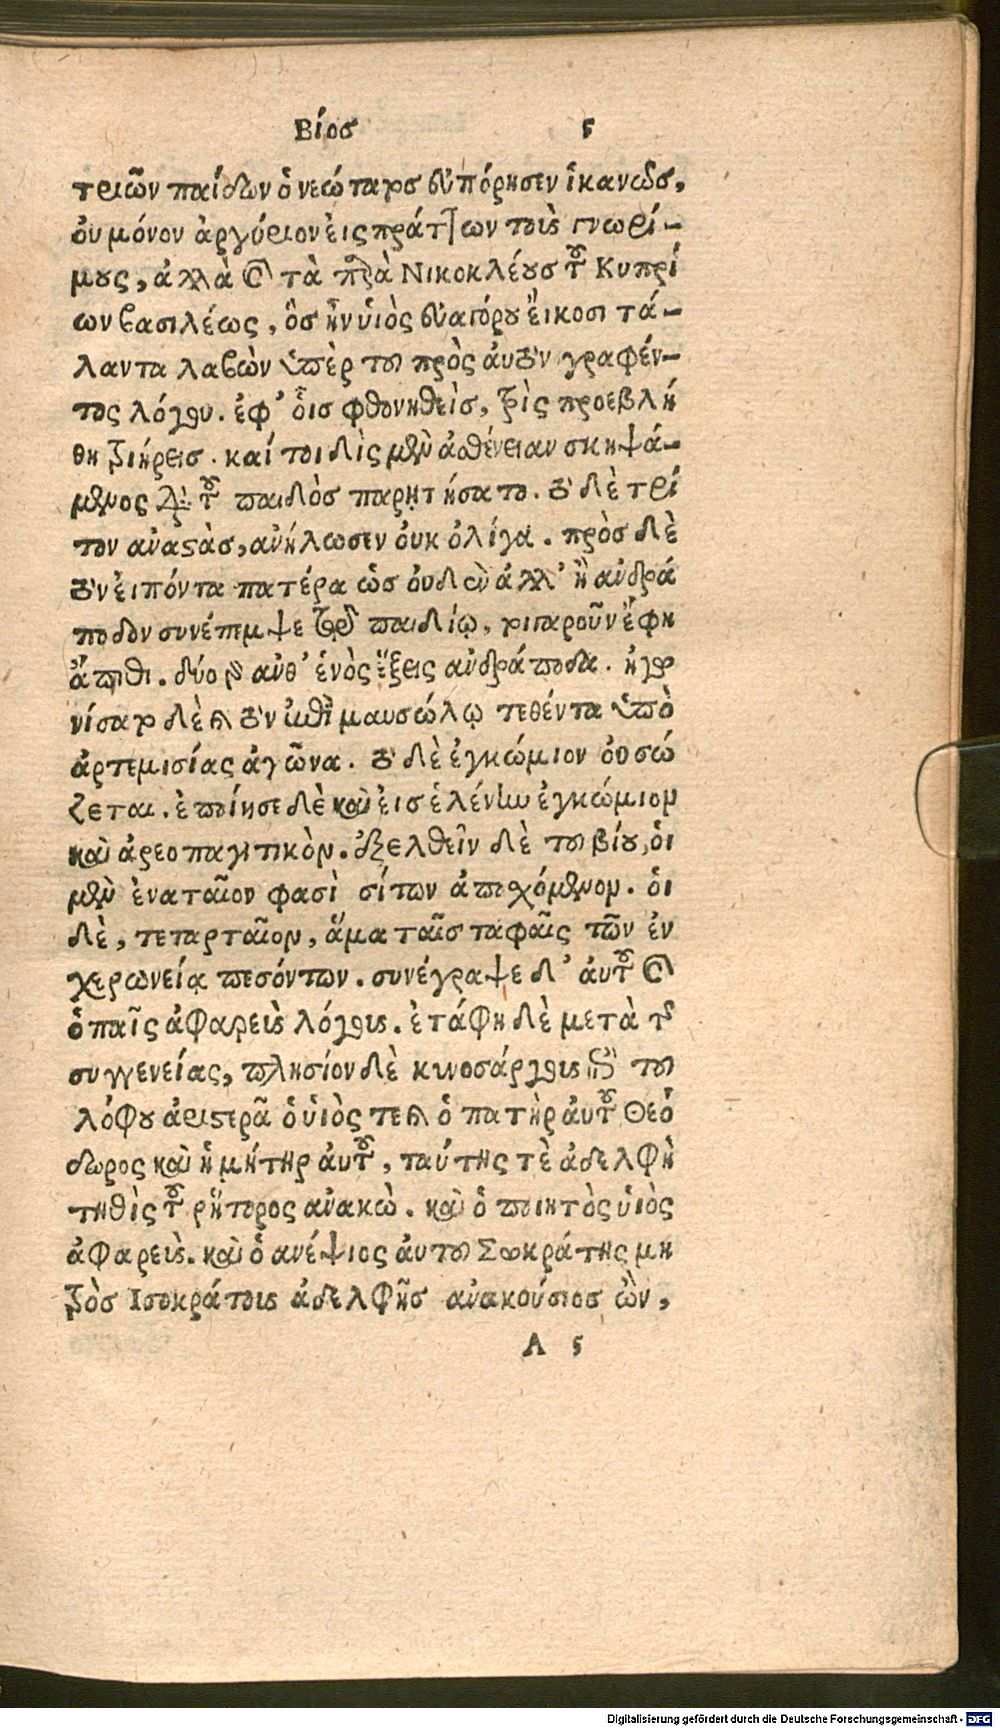 Βίος 5
τριῶν παίδων ὁ νεώτατος εὐπόρησεν ἱκανῶς,
ὀυ μόνον ἀργύριον ἐισπράττων τοὺς γνωρί-
μους, ἀλλὰ καὶ τὰ παρὰ Νικοκλέους τοῦ Κυπρί
ων βασιλέως, ὃς ἦν ὑιὸς εὐαγόρου ἔικοσι τά-
λαντα λαβὼν ὑπὲρ τοῦ πρὸς ἀυτὸν γραφέν-
τος λόγου. ἐφ' οἷς φθονηθεὶς, τρὶς προεβλή
θη τριήρεις. καί τοι δὶς μὲν ἀσθένειαν σκηψά-
μενος διὰ τοῦ παιδὸς παρῃτήσατο. τὸ δὲ τρί
τον ἀναστὰς, ἀνήλωσεν ὀυκ ὀλίγα. πρὸς δὲ
τὸν ἐιπόντα πατέρα ὡς ὀυδὲν ἀλλ' ἢ ἀνδρά
ποδον συνέπεμψε τῷ παιδίῳ, τοιγαροῦν ἔφη
ἄπιθι. δύο γὰρ ἀνθ' ἑνὸς ἕξεις ἀνδράποδα. ἠγω
νίσατο δὲ καὶ τὸν ἐπὶ μαυσώλῳ τεθέντα ὑπὸ
ἀρτεμισίας ἀγῶνα. τὸ δὲ ἐγκώμιον ὀυ σώ
ζεται. ἐποίησε δὲ καὶ ἐις ἑλένην ἐγκώμιον
καὶ ἀρεοπαγιτικὸν. ἐξελθεῖν δὲ τοῦ βίου, ὁι
μὲν ἐναταῖον φασὶ σίτων ἀποχόμενον. ὁι
δὲ, τεταρταῖον, ἅμα ταῖς ταφαῖς τῶν ἐν
χερωνείᾳ πεσόντων. συνέγραψε δ' ἀυτοῦ καὶ
ὁ παῖς ἀφαρεὺς λόγους. ἐτάφη δὲ μετὰ τῆς
συγγενείας, πλησίον δὲ κινοσάργους ἐπὶ τοῦ
λόφου ἀριστερᾶ ὁ ὑιὸς τε καὶ ὁ πατὴρ ἀυτοῦ Θεό
δωρος καὶ ἡ μήτηρ ἀυτοῦ, ταύτης τὲ ἀδελφὴ
τηθὶς τοῦ ῥήτορος ἀνακὼ. καὶ ὁ ποιητὸς ὑιὸς
ἀφαρεὺς. καὶ ὁ ανέψιος ἀυτοῦ Σωκράτης μη
τρὸς Ισοκράτους ἀδελφῆς ἀνακούσιος ὢν,
Α 5
Digitalisierung gefördert durch die Deutsche Forschungsgemeinschaft - DFG